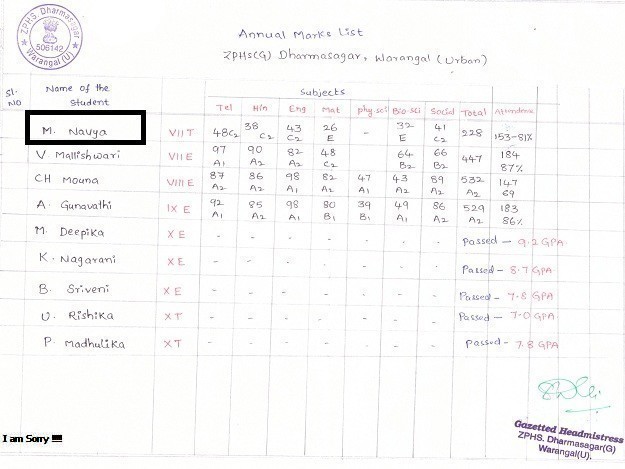 ZPHS, Dharmasagar
506142
Warangal(U)
Annual Marks List
ZPHS(G) Dharmasagar, Warangal (Urban)
Sl. NO Name of the Student Subjects
Tel Hin Eng Mat phy.sci Bio sci Social Total Attendence
M. Navya VII T 48 C2 38 C2 43 C2 26 E - 32 E 41 C2 228 153-81%
V. Mallishwari VII E 97 A1 90 A1 82 A2 48 C2 64 B2 66 B2 447 184 87%
CH Mouna VIII E 87 A2 86 A2 98 A1 82 A2 47 A1 43 A2 89 A2 532 A2 147 69
A. Gunavathi IX E 92 A1 85 A2 98 A1 80 B1 39 B1 49 A1 86 A2 529 A2 183 86%
M. Deepika X E - - - - - - - Passed - 9.2 GPA
K. Nagarani X E - - - - - - - Passed - 8.7 GPA
B. Sriveni X E - - - - - - - Passed - 7.8 GPA
U. Rishika X T - - - - - - - Passed - 7.0 GPA
P. Madhulika X T - - - - - - - Passed - 7.8 GPA
I am Sorry !!!
Gazetted Headmistress
ZPHS. Dharmasagar(G)
Warangal(U).